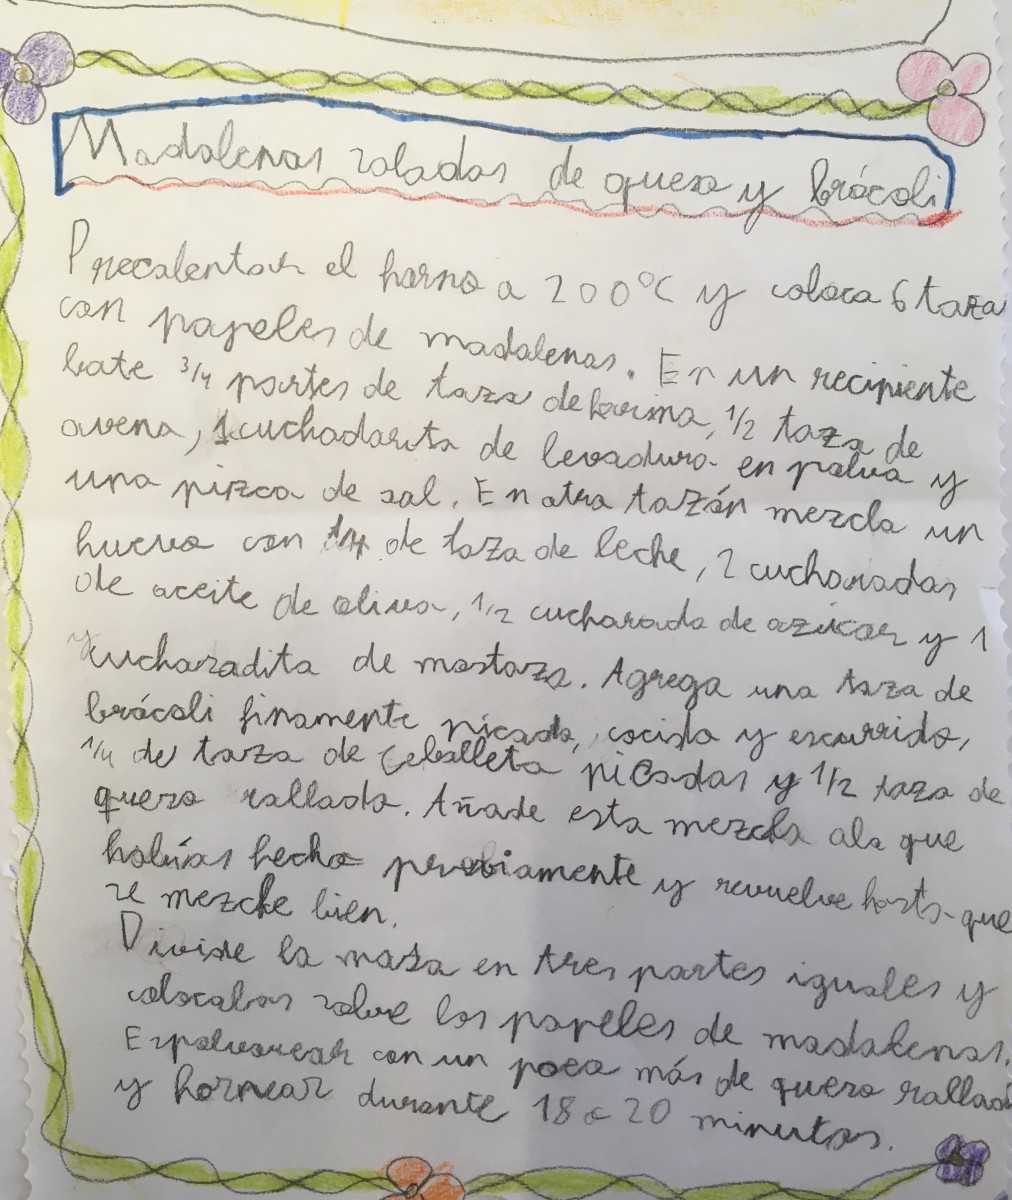 Madalenas saladas de queso y brócoli
Precalentar el horno a 200ºC y coloca 6 taza
con papeles de madalenas. En un recipiente
bate 3/4 partes de taza de harina, 1/2 taza de
avena, 1 cuchadarita de levadura en polvo y
una pizca de sal. En otro tazón mezcla un
huevo con 1/4 de taza de leche, 2 cucharadas
de aceite de oliva, 1/2 cucharada de azúcar y 1
cucharadita de mostaza. Agrega una taza de
brócoli finamente picado, cocido y escurrido,
1/4 de taza de Ceballeta picadas y 1/2 taza de
queso rallado. Añade esta mezcla ala que
habías hecho previamente y revuelve hasta que
se mezcle bien.
Divide la masa en tres partes iguales y
colocalas sobre los papeles de madalenas.
Espolvorear con un poco más de queso rallado
y hornear durante 18 a 20 minutos.